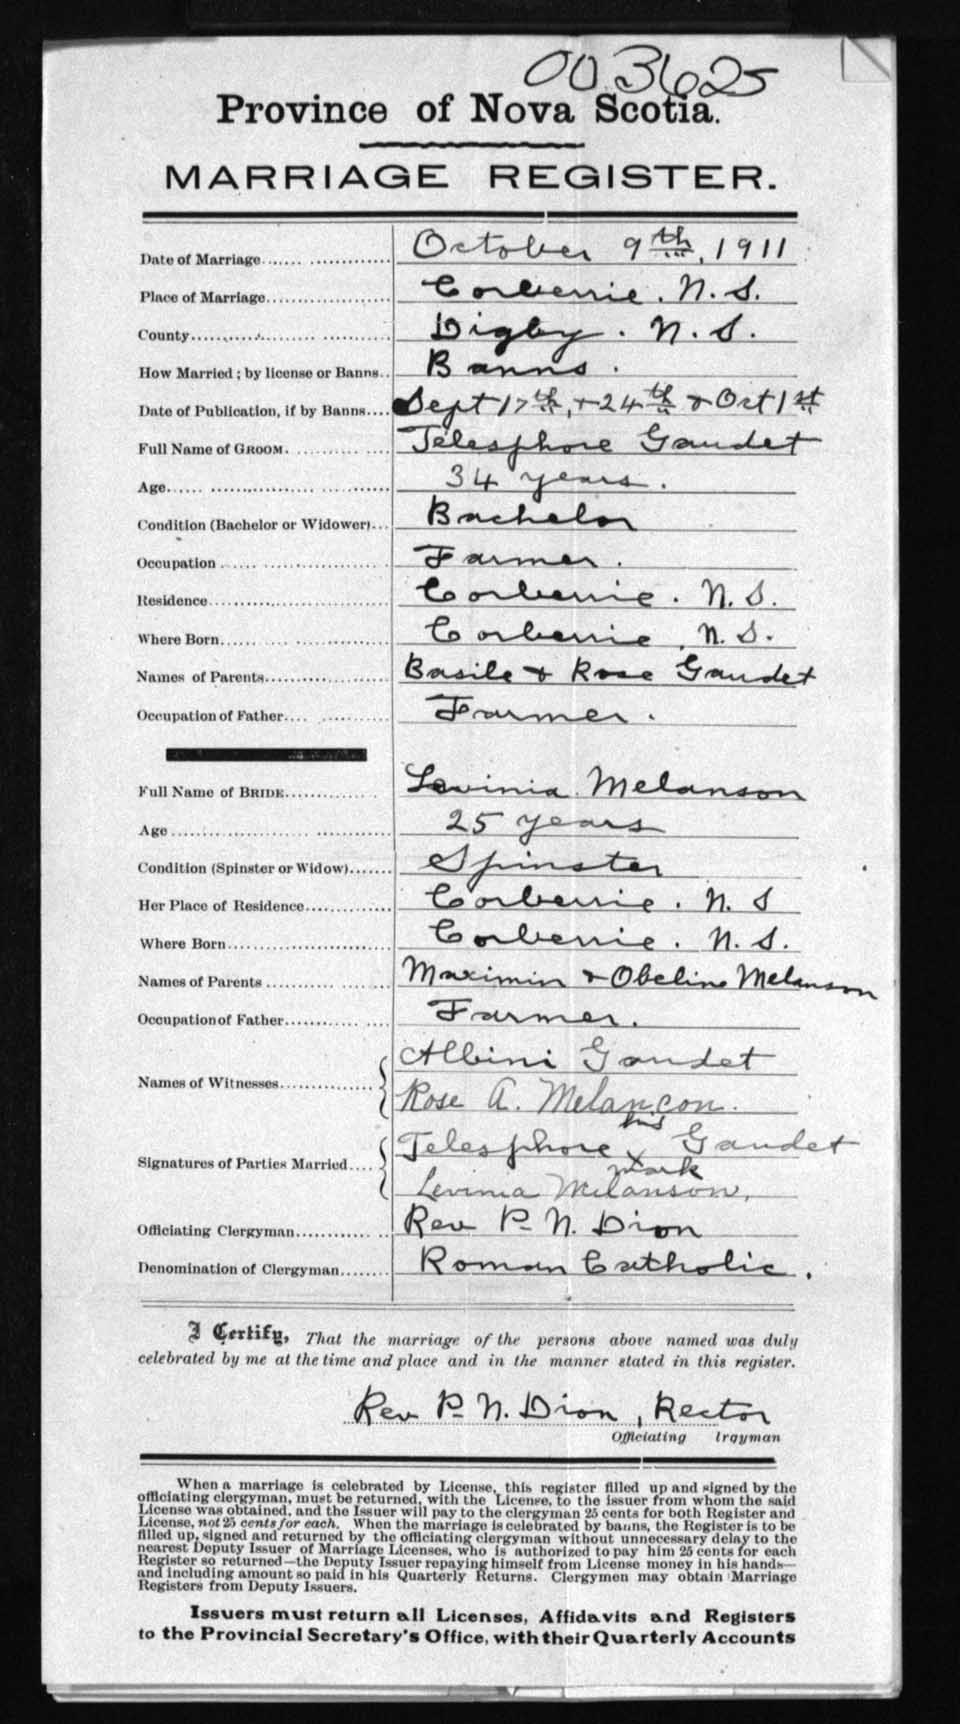 003625
Province of Nova Scotia.
MARRIAGE REGISTER.
Date of Marriage........ October 9th, 1911
Place of Marriage........ Corberrie. N. S.
County........ Digby. N. S.
How Married; by license or Banns.. Banns.
Date of Publication, if by Banns.... Sept 17th, + 24th & Oct 1st
Full Name of GROOM........ Telesphore Gaudet
Age........ 34 years.
Condition (Bachelor or Widower)... Bachelor
Occupation........ Farmer.
Residence........ Corberrie. N. S.
Where Born........ Corberrie, N. S.
Names of Parents........ Basile & Rose Gaudet
Occupation of Father........ Farmer.
Full Name of BRIDE........ Levinia Melanson
Age........ 25 years
Condition (Spinster or Widow)....... Spinster
Her Place of Residence........ Corberrie. N. S
Where Born........ Corberrie. N. S.
Names of Parents........ Maximin & Obeline Melanson
Occupation of Father........ Farmer.
Albini Gaudet
Names of Witnesses........
Rose A. Melançon.
his
Telesphore X Gaudet
Signatures of Parties Married....
mark
Levinia Melanson,
Officiating Clergyman........ Rev P. N. Dion
Denomination of Clergyman....... Roman Catholic.
I Certify, That the marriage of the persons above named was duly
celebrated by me at the time and place and in the manner stated in this register.
Rev P. N. Dion, Rector
Officiating lrgyman
When a marriage is celebrated by License, this register filled up and signed by the
officiating clergyman, must be returned, with the License, to the issuer from whom the said
License was obtained, and the Issuer will pay to the clergyman 25 cents for both Register and
License, not 25 cents for each. When the marriage is celebrated by banns, the Register is to be
filled up, signed and returned by the officiating clergyman without unnecessary delay to the
nearest Deputy Issuer of Marriage Licenses, who is authorized to pay him 25 cents for each
Register so returned—the Deputy Issuer repaying himself from License money in his hands—
and including amount so paid in his Quarterly Returns. Clergymen may obtain Marriage
Registers from Deputy Issuers.
Issuers must return all Licenses, Affidavits and Registers
to the Provincial Secretary's Office, with their Quarterly Accounts